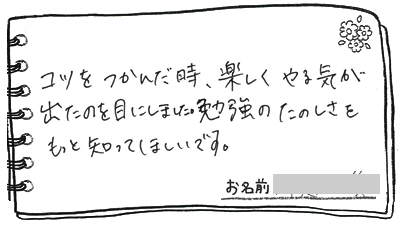 コツをつかんだ時、楽しくやる気が
出たのを目にしました。勉強のたのしさを
もっと知ってほしいです。
お名前